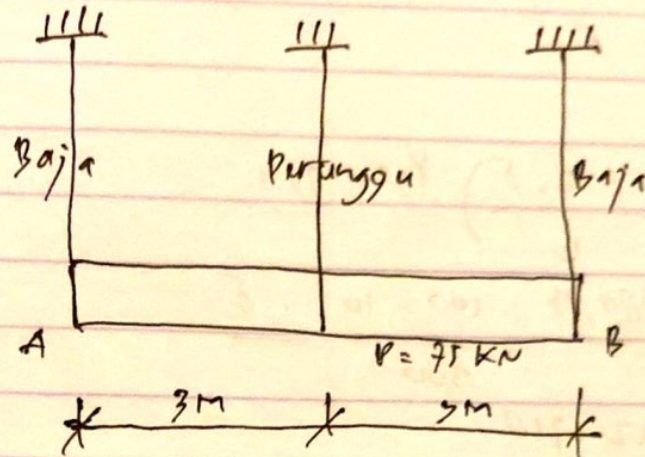 Baja Perunggu Baja
A B
P = 75 KN
3 M 3 M